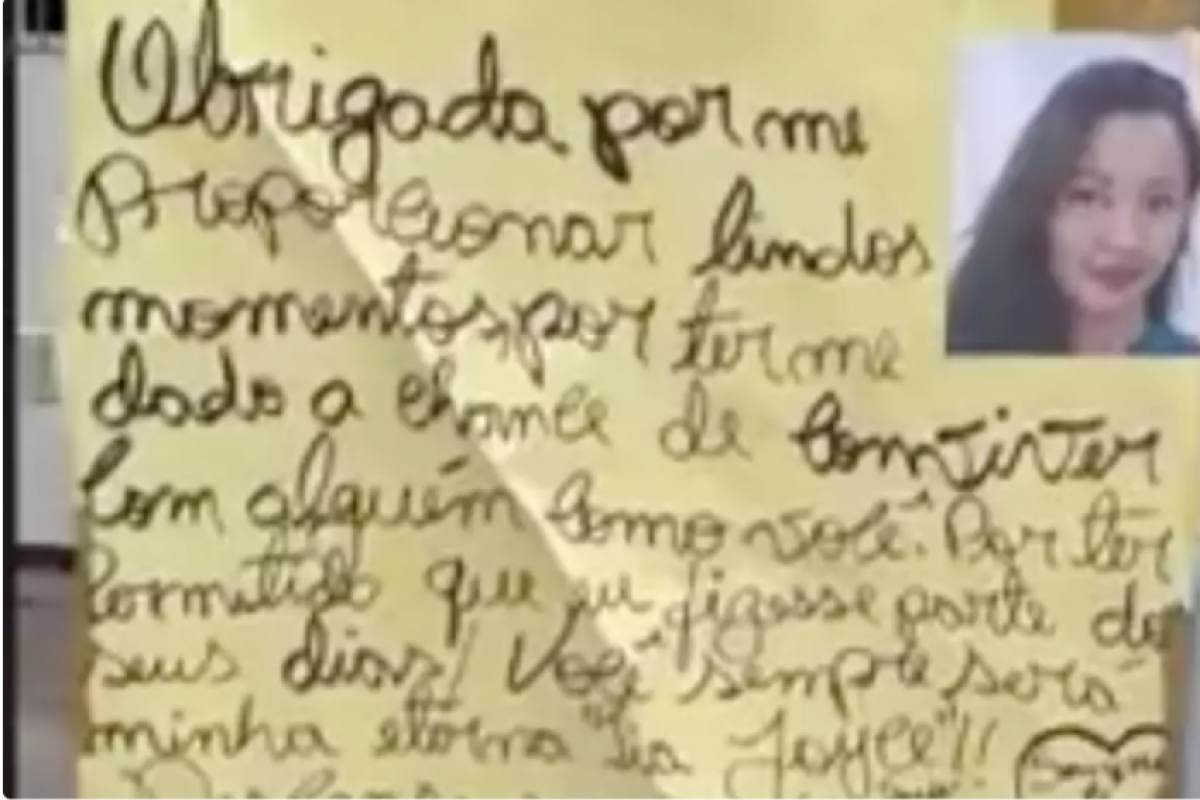 Obrigada por me
Proporcionar lindos
momentos, por ter me
dado a chance de
com alguém como você. Por ter
que eu fizesse parte de
seus dias! Você sempre será
minha eterna "tia Joyce"!!